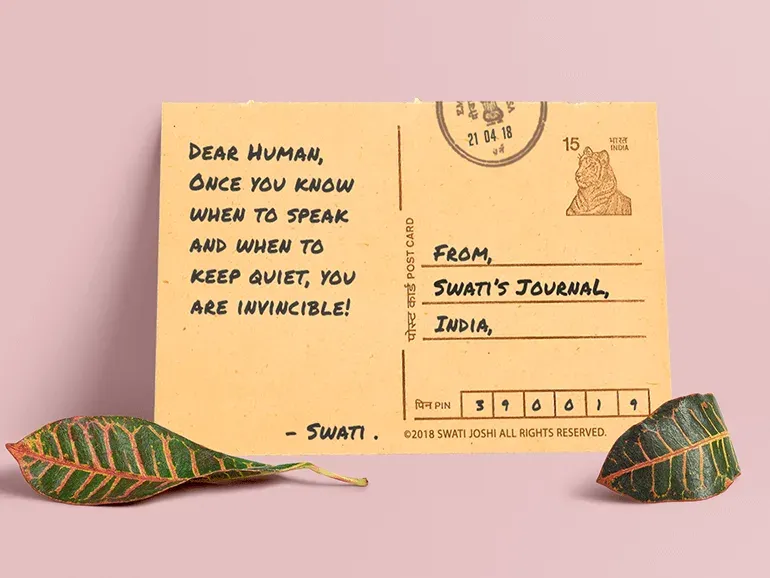 DEAR HUMAN,
ONCE YOU KNOW
WHEN TO SPEAK
AND WHEN TO
KEEP QUIET, YOU
ARE INVINCIBLE!
- SWATI .
21 04 18
15 भारत
INDIA
पोस्ट कार्ड POST CARD
FROM,
SWATI'S JOURNAL,
INDIA,
पिन PIN 3 9 0 0 1 9
©2018 SWATI JOSHI ALL RIGHTS RESERVED.